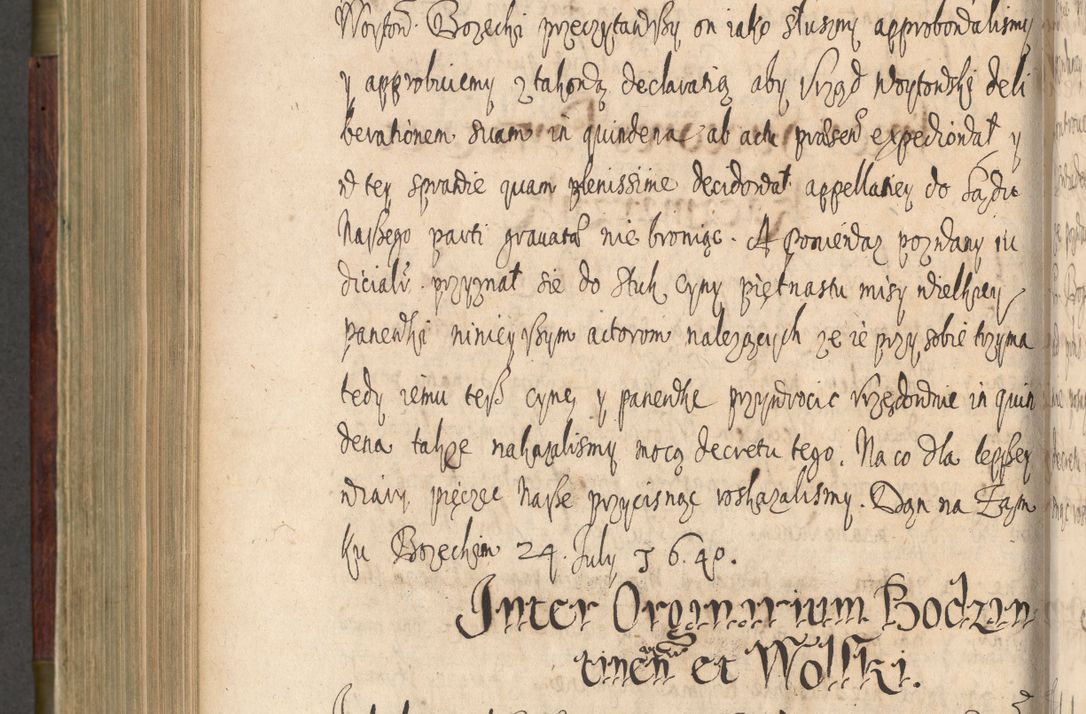 Woyton̄. Bozecki przeczytawszy on iako słuszny approbowalismy
y approbuiemy z takową declaratią aby Vrząd Woytowski deli
berationem suam in quindena ab actu præsen̄ expediował y
w tey sprawie quam plenissime decidował appellatiey do Sądu
Naszego parti gravatæ nie broniąc. A Ponieważ pozwany iu
dicialr̄ przyznał sie do sztuk cyny piętnastu misy wielkiey
panewki ninieyszym actorom nalezących ze ie przy sobie trzyma
tedy iemu tesz cynę y panewke przywrocic Vrzędownie in quin
dena takze nakazalismy mocą decretu tego. Na co dla lepszey
wiary pięczęc Nasze przycisnąc roskazalismy. Dan na Zam
ku Bozechin 24. July 1640.
Inter Organarium Bodzen
tinen̄ et Wolski.